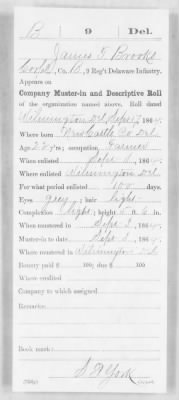 B | 9 | Del.
James F. Brooks
Corpl, Co. B, 9 Reg't Delaware Infantry.
Appears on
Company Muster-in and Descriptive Roll
of the organization named above. Roll dated
Wilmington Del, Sept 186
Where born New Castle Co Del.
Age 22 y'rs; occupation Farmer
When enlisted Sept 186
Where enlisted Wilmington Del
For what period enlisted 100 days
Eyes grey; hair light
Complexion light; height 5 ft. 6 in.
When mustered in Sept 186
Muster-in date Sept 186
Where mustered in Wilmington Del
Bounty paid $ 100; due $ 100
Where credited
Company to which assigned
Remarks:
Book mark:
York